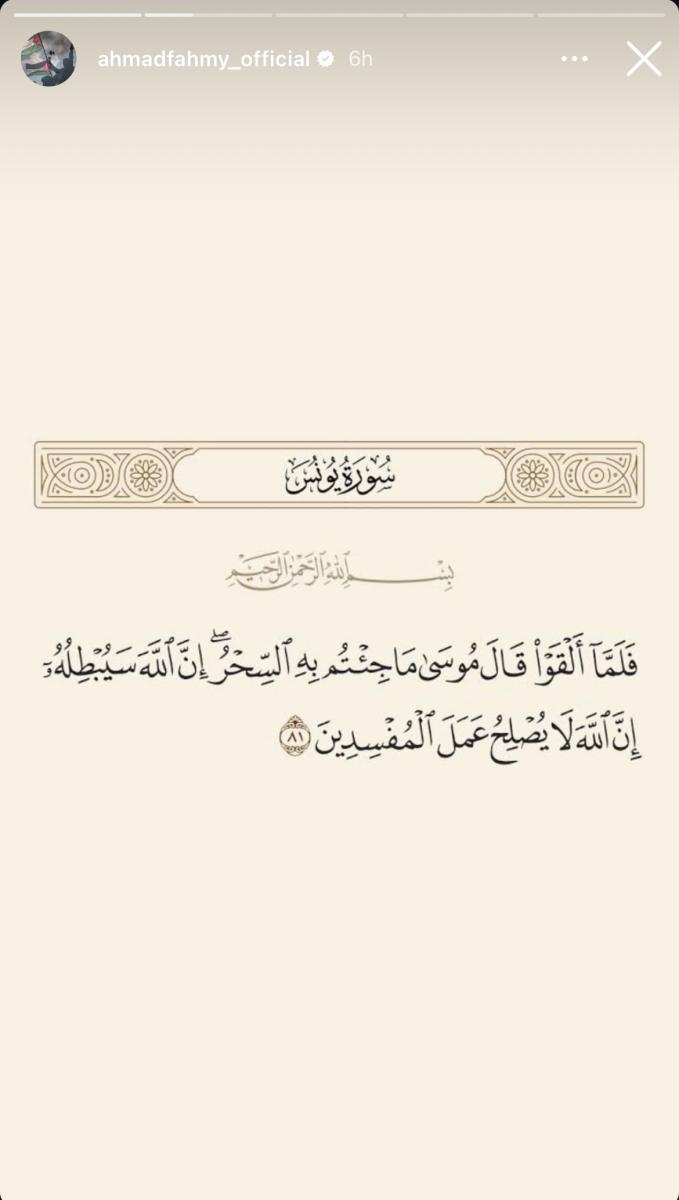 ahmadfahmy_official 6h
سُورَةُ يُونُسَ
بِسْمِ ٱللَّهِ ٱلرَّحْمَٰنِ ٱلرَّحِيمِ
فَلَمَّآ أَلْقَوْا۟ قَالَ مُوسَىٰ مَا جِئْتُم بِهِ ٱلسِّحْرُ ۖ إِنَّ ٱللَّهَ سَيُبْطِلُهُۥٓ
إِنَّ ٱللَّهَ لَا يُصْلِحُ عَمَلَ ٱلْمُفْسِدِينَ ٨١